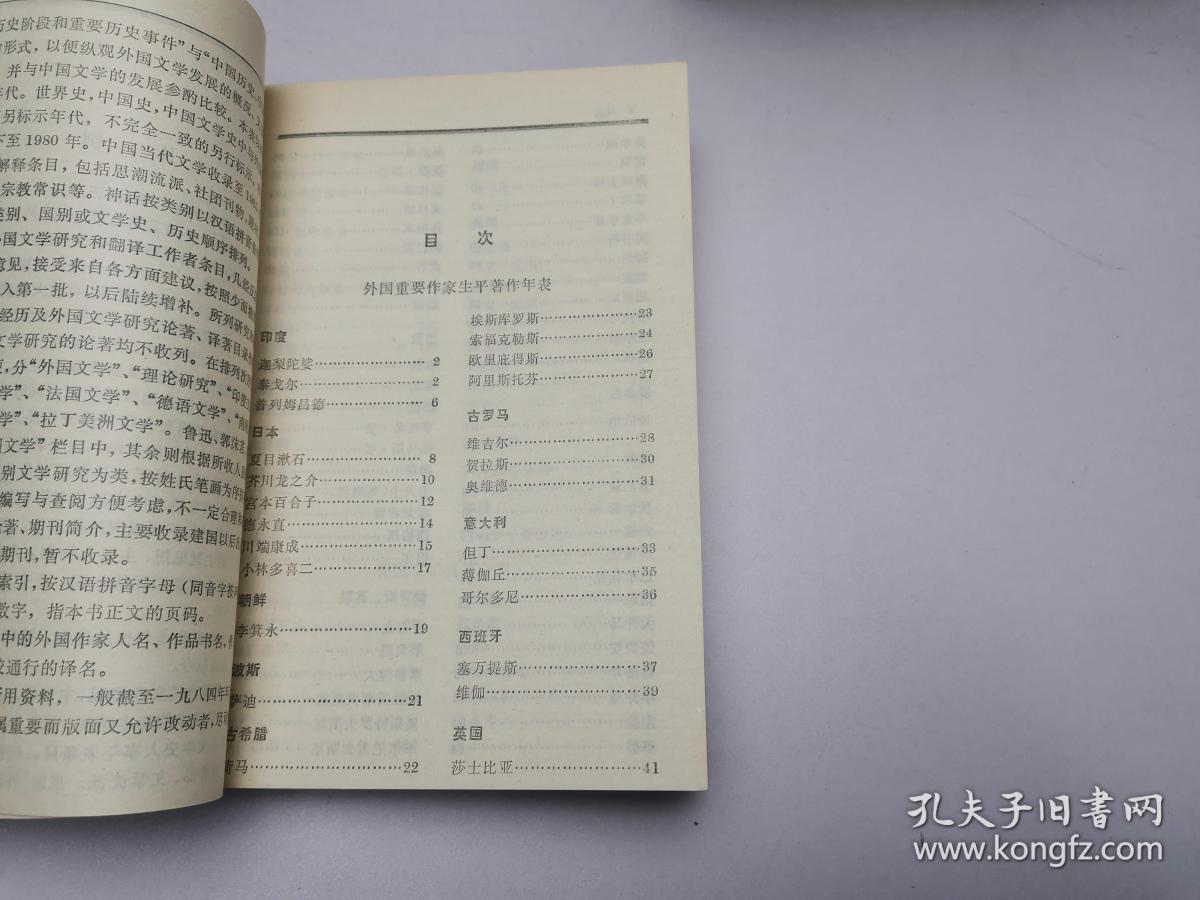 历史阶段和重要历史事件”与“中国历史、
形式，以便纵观外国文学发展的概况、
并与中国文学的发展参酌比较。本表
年代。世界史，中国史，中国文学史中与
另标示年代，不完全一致的另行标示，
下至1980年。中国当代文学收录至
解释条目，包括思潮流派、社团刊物、
宗教常识等。神话按类别以汉语拼音
类别、国别或文学史、历史顺序排列。
外国文学研究和翻译工作者条目，几经
意见，接受来自各方面建议，按照少而
入第一批，以后陆续增补。所列研究
经历及外国文学研究论著、译著目录
文学研究的论著均不收列。在排列次
更，分“外国文学”、“理论研究”、“印度
学”、“法国文学”、“德语文学”、“南
学”、“拉丁美洲文学”。鲁迅、郭沫若、
国文学”栏目中，其余则根据所收人
别文学研究为类，按姓氏笔画为序
编写与查阅方便考虑，不一定合理
论著、期刊简介，主要收录建国以后
期刊，暂不收录。
索引，按汉语拼音字母（同音字按
数字，指本书正文的页码。
中的外国作家人名、作品书名、
较通行的译名。
所用资料，一般截至一九八四年
属重要而版面又允许改动者，尽
目 次
外国重要作家生平著作年表
印度
迦梨陀娑……2
泰戈尔……2
普列姆昌德……6
日本
夏目漱石……8
芥川龙之介……10
宫本百合子……12
德永直……14
川端康成……15
小林多喜二……17
朝鲜
李箕永……19
波斯
萨迪……21
古希腊
荷马……22
埃斯库罗斯……23
索福克勒斯……24
欧里庇得斯……26
阿里斯托芬……27
古罗马
维吉尔……28
贺拉斯……30
奥维德……31
意大利
但丁……33
薄伽丘……35
哥尔多尼……36
西班牙
塞万提斯……37
维伽……39
英国
莎士比亚……41
孔夫子旧书网
www.kongfz.com